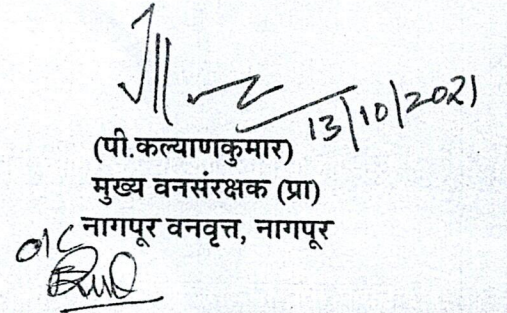 13/10/2021
(पी.कल्याणकुमार)
मुख्य वनसंरक्षक (प्रा)
नागपूर वनवृत्त, नागपूर